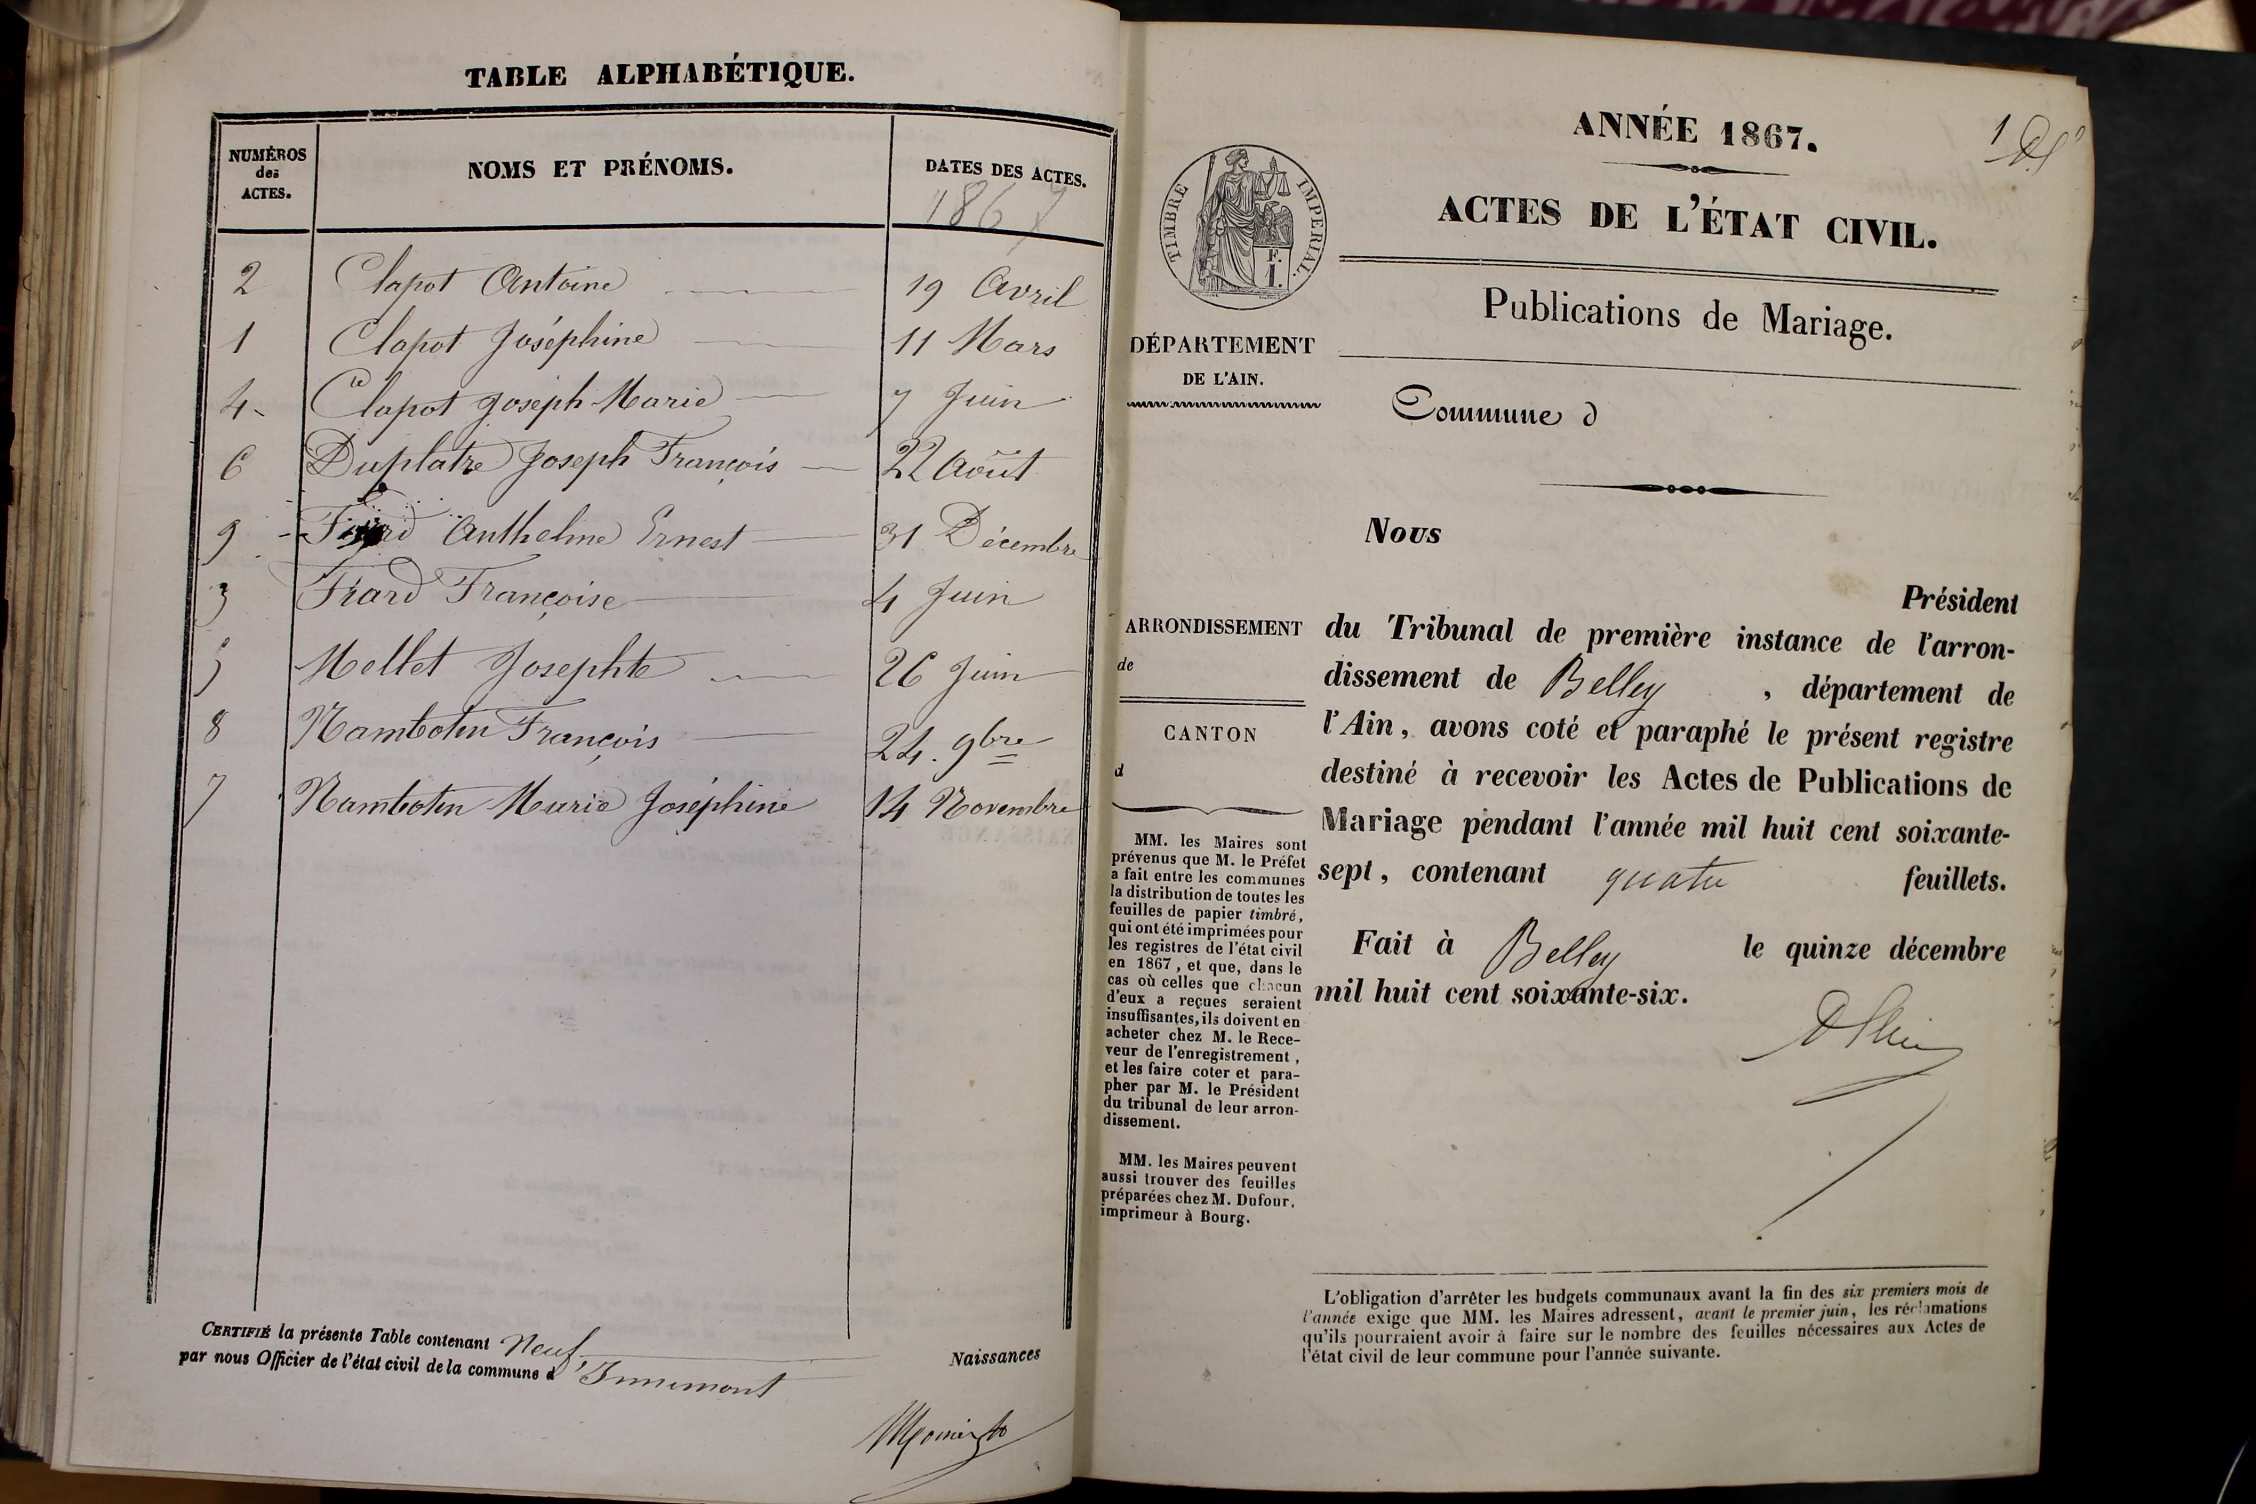 TABLE ALPHABÉTIQUE.
NUMÉROS
des
ACTES.
NOMS ET PRÉNOMS.
DATES DES ACTES.
1867
2 Clapot Antoine 19 Avril
1 Clapot Joséphine 11 Mars
4 Clapot Joseph Marie 7 Juin
6 Duplatre Joseph François 22 Août
9 Fiard Anthelme Ernest 31 Décembre
3 Fiard Françoise 4 Juin
5 Mellet Josephte 26 Juin
8 Nambotin François 24. 9bre
7 Nambotin Marie Joséphine 14 Novembre
CERTIFIÉ la présente Table contenant Neuf Naissances
par nous Officier de l'état civil de la commune d'Innimont
ANNÉE 1867.
1
ACTES DE L'ÉTAT CIVIL.
TIMBRE IMPERIAL.
F.
1.
Publications de Mariage.
DÉPARTEMENT
DE L'AIN.
Commune d
Nous
Président
ARRONDISSEMENT
de
CANTON
d
du Tribunal de première instance de l'arron-
dissement de Belley , département de
l'Ain, avons coté et paraphé le présent registre
destiné à recevoir les Actes de Publications de
Mariage pendant l'année mil huit cent soixante-
sept, contenant quatre feuillets.
Fait à Belley le quinze décembre
mil huit cent soixante-six.
MM. les Maires sont
prévenus que M. le Préfet
a fait entre les communes
la distribution de toutes les
feuilles de papier timbré,
qui ont été imprimées pour
les registres de l'état civil
en 1867, et que, dans le
cas où celles que chacun
d'eux a reçues seraient
insuffisantes, ils doivent en
acheter chez M. le Rece-
veur de l'enregistrement,
et les faire coter et para-
pher par M. le Président
du tribunal de leur arron-
dissement.
MM. les Maires peuvent
aussi trouver des feuilles
préparées chez M. Dufour,
imprimeur à Bourg.
L'obligation d'arrêter les budgets communaux avant la fin des six premiers mois de
l'année exige que MM. les Maires adressent, avant le premier juin, les réclamations
qu'ils pourraient avoir à faire sur le nombre des feuilles nécessaires aux Actes de
l'état civil de leur commune pour l'année suivante.